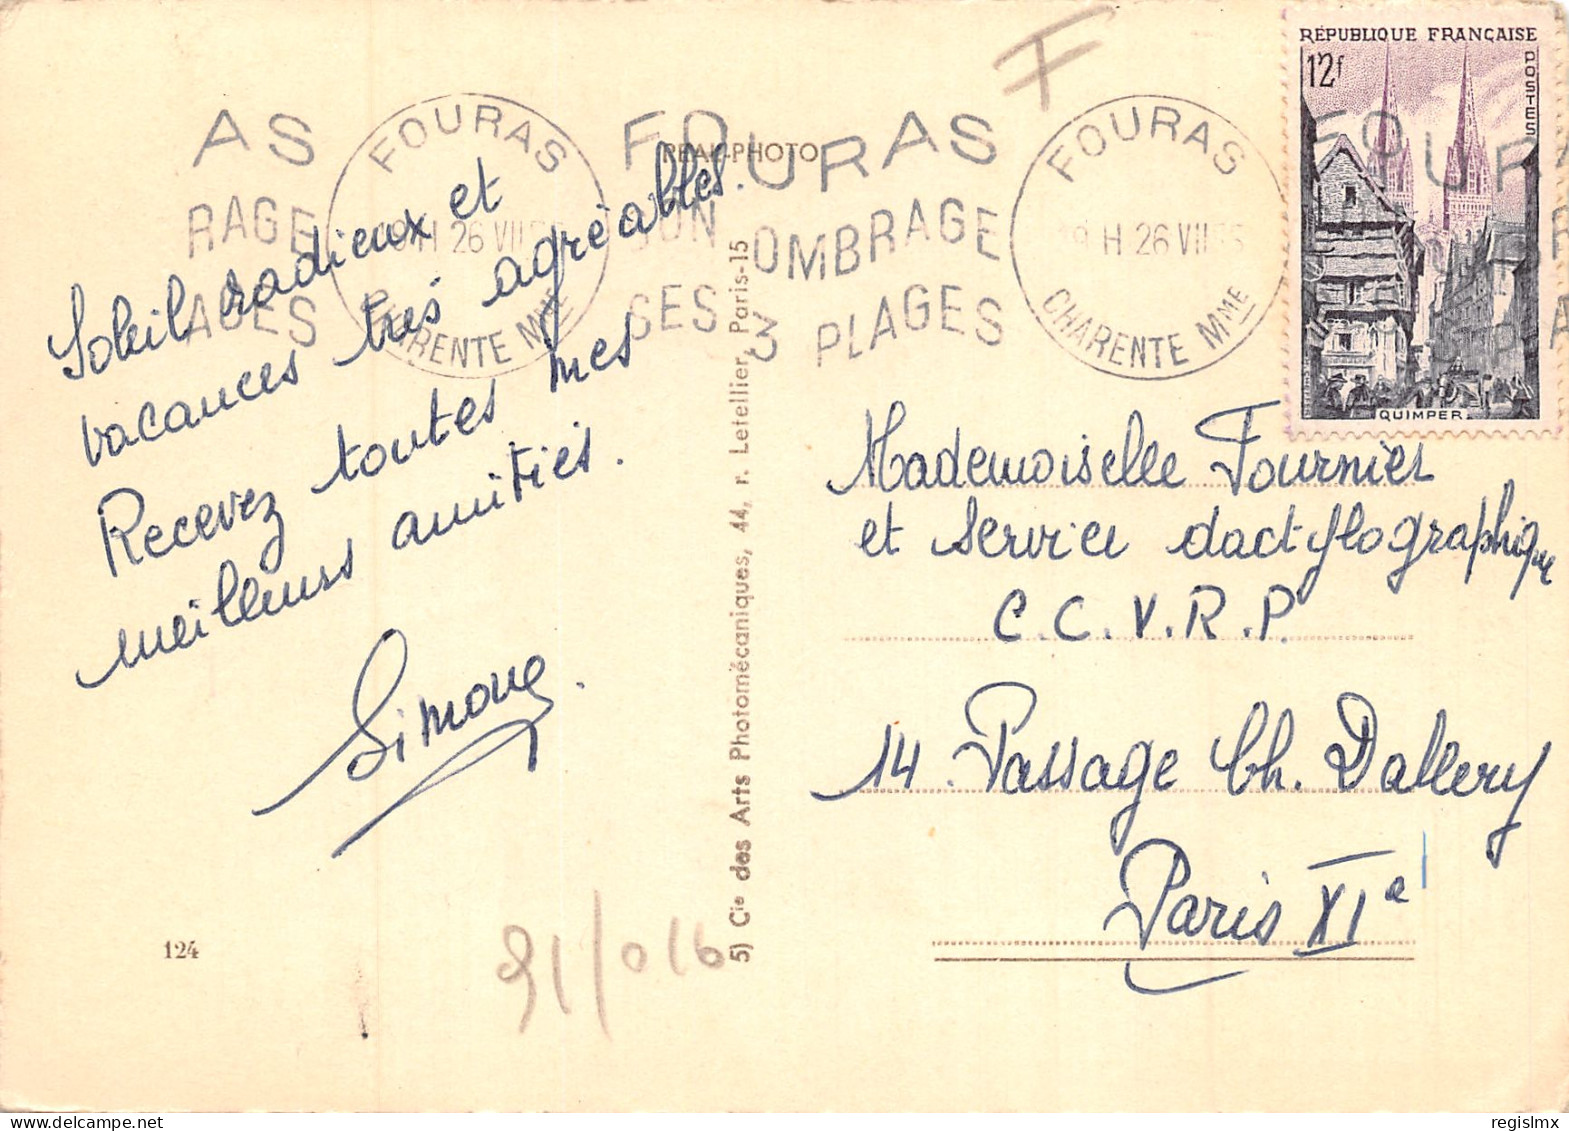 F
RÉPUBLIQUE FRANÇAISE
12f
POSTES
QUIMPER
AS
RAGE
AGES
FOURAS
H 26 VII
CHARENTE MME
FOURAS
SON OMBRAGE
SES 3 PLAGES
FOURAS
19 H 26 VII
CHARENTE MME
RÉAL-PHOTO
Soleil radieux et
vacances très agréables.
Recevez toutes mes
meilleurs amitiés.
Simone.
5) Cie des Arts Photomécaniques, 44, r. Letellier, Paris-15
Mademoiselle Fournier
et Service dactylographique
C.C.V.R.P.
14 Passage Ch. Dallery
Paris XIe
124
91/016
regislmx